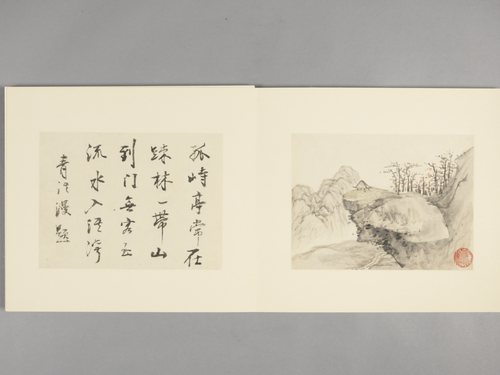 孤峙亭常在
疎林一帶山
到门無客至
流水入溪灣
青溪漫題